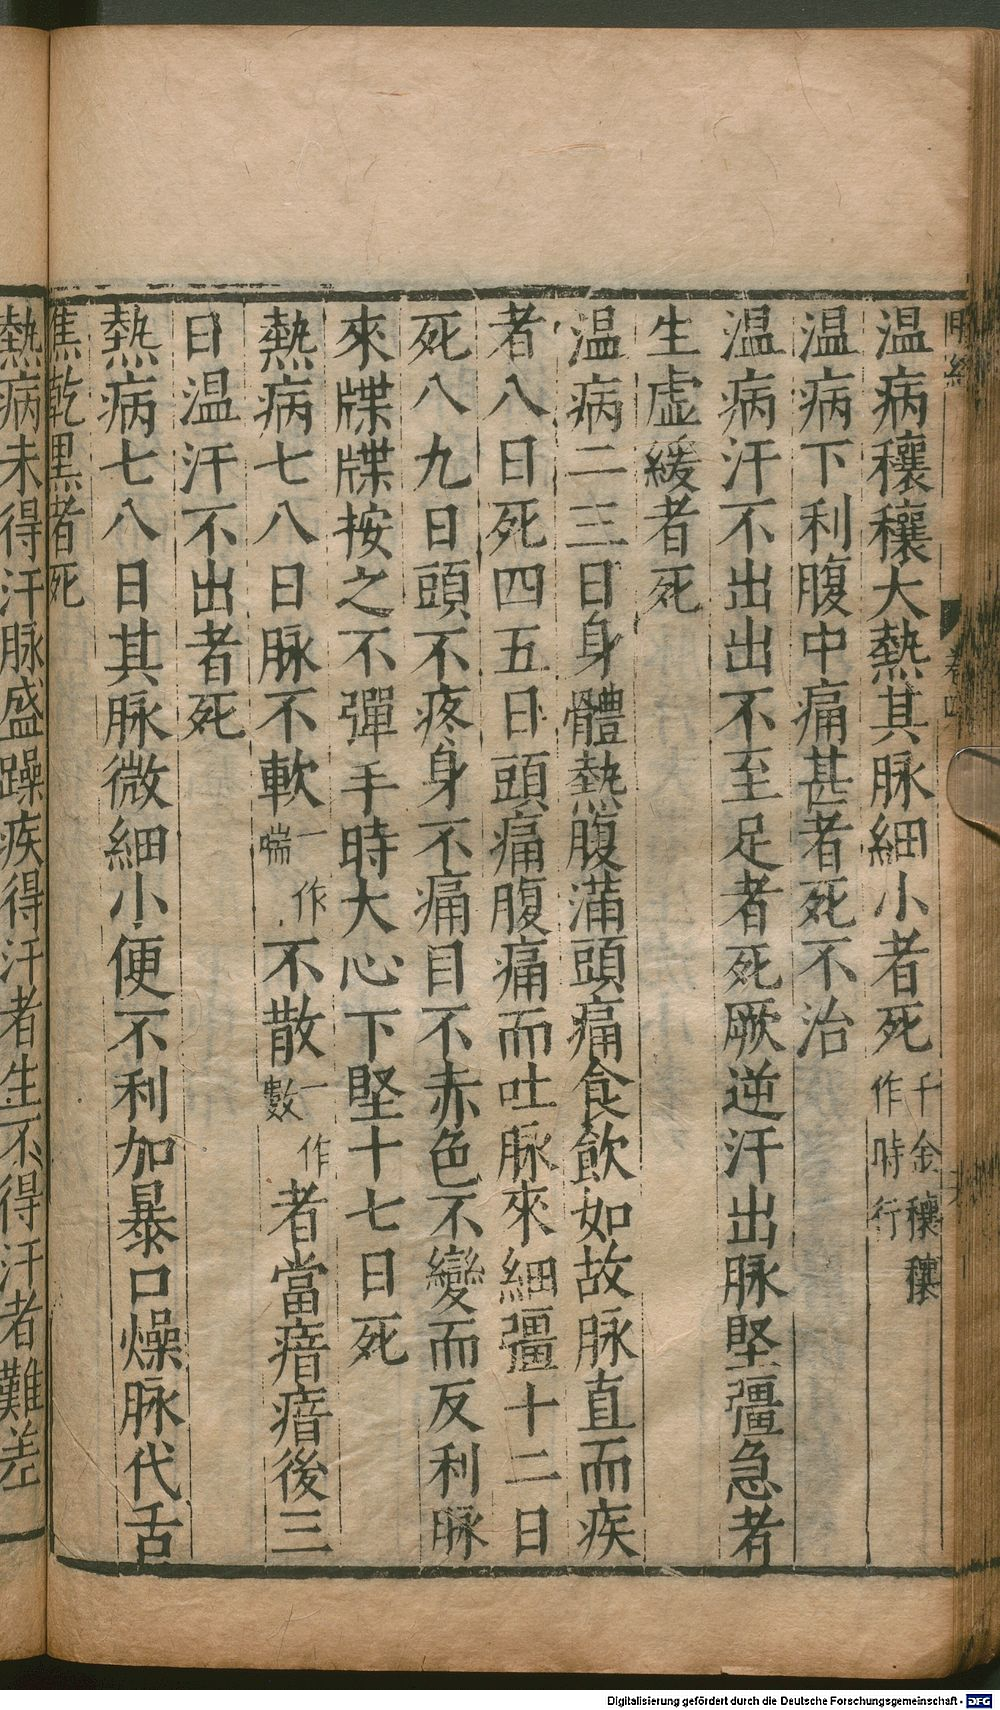 温病穰穰大熱其脉細小者死千金穰穰作時行
温病下利腹中痛甚者死不治
温病汗不出出不至足者死厥逆汗出脉堅彊急者
生虚緩者死
温病二三日身體熱腹滿頭痛食飲如故脉直而疾
者八日死四五日頭痛腹痛而吐脉來細彊十二日
死八九日頭不疼身不痛目不赤色不變而反利脉
來牒牒按之不彈手時大心下堅十七日死
熱病七八日脉不軟一作喘不散一作數者當瘖瘖後三
日温汗不出者死
熱病七八日其脉微細小便不利加暴口燥脉代舌
焦乾黒者死
熱病未得汗脉盛躁疾得汗者生不得汗者難差
卷四
Digitalisierung gefördert durch die Deutsche Forschungsgemeinschaft - DFG